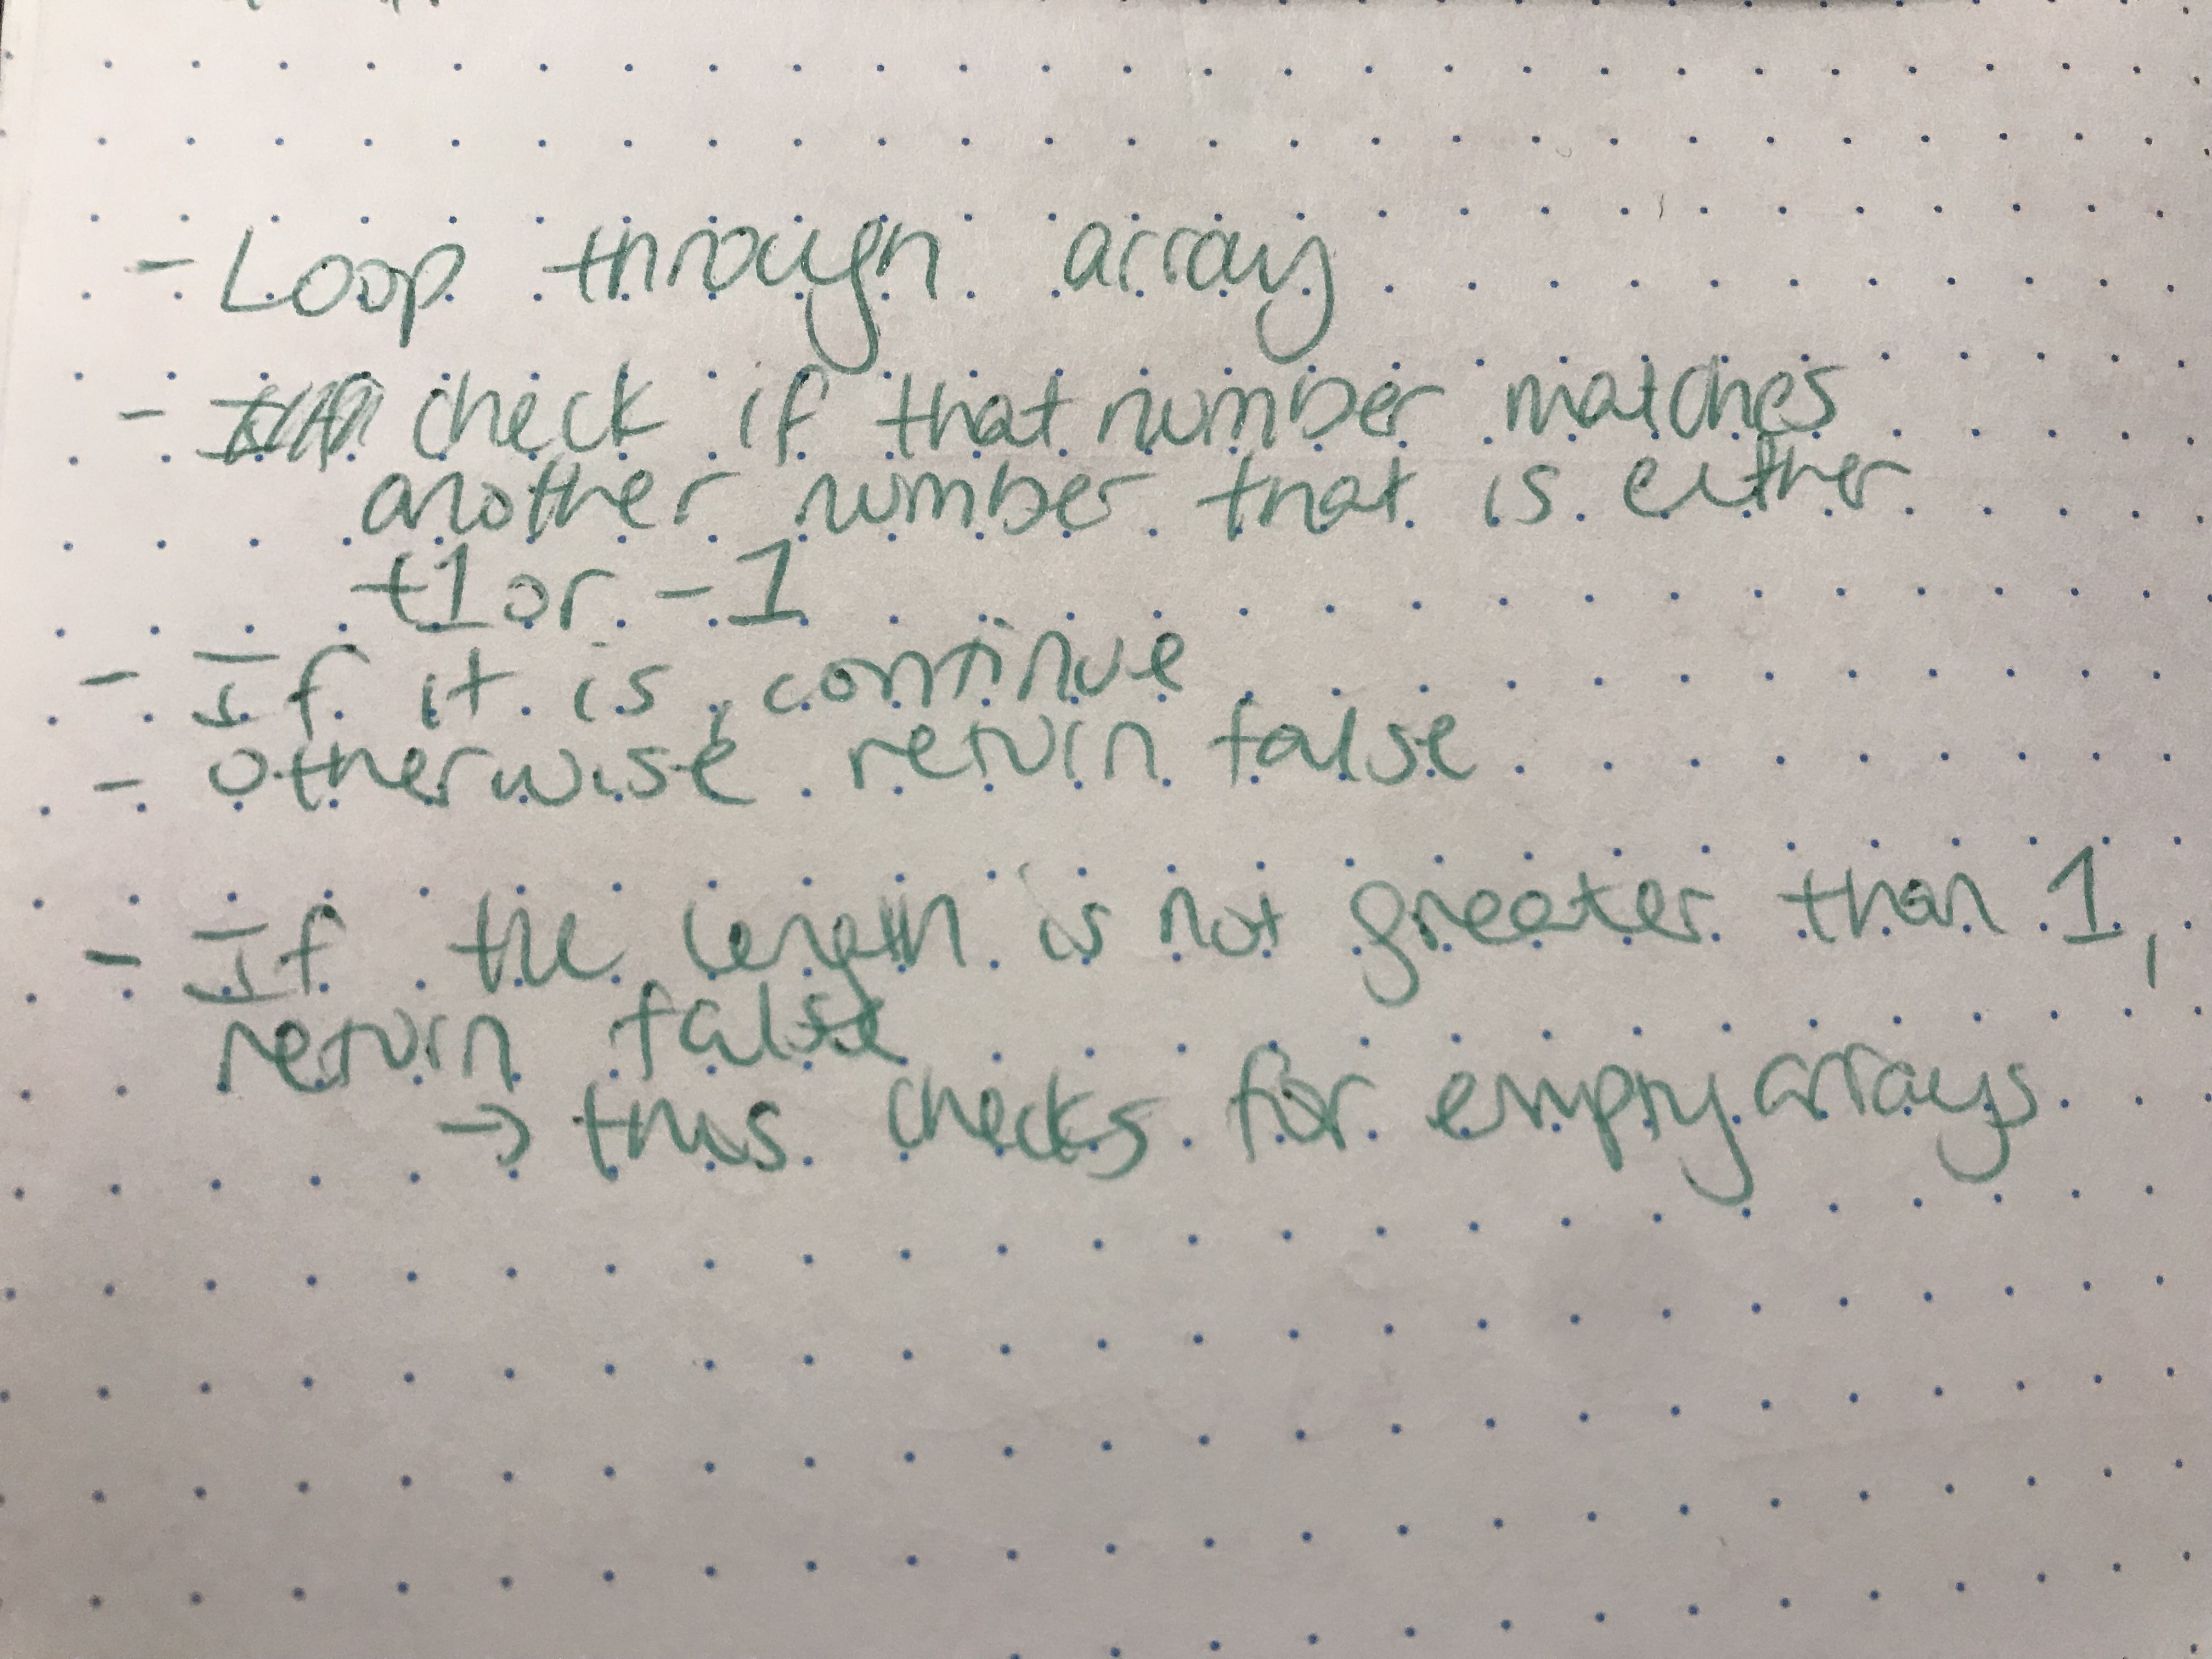 - Loop through array
- check if that number matches
another number that is either
+1 or -1
- If it is, continue
- otherwise return false
- If the length is not greater than 1,
return false
→ this checks for empty arrays